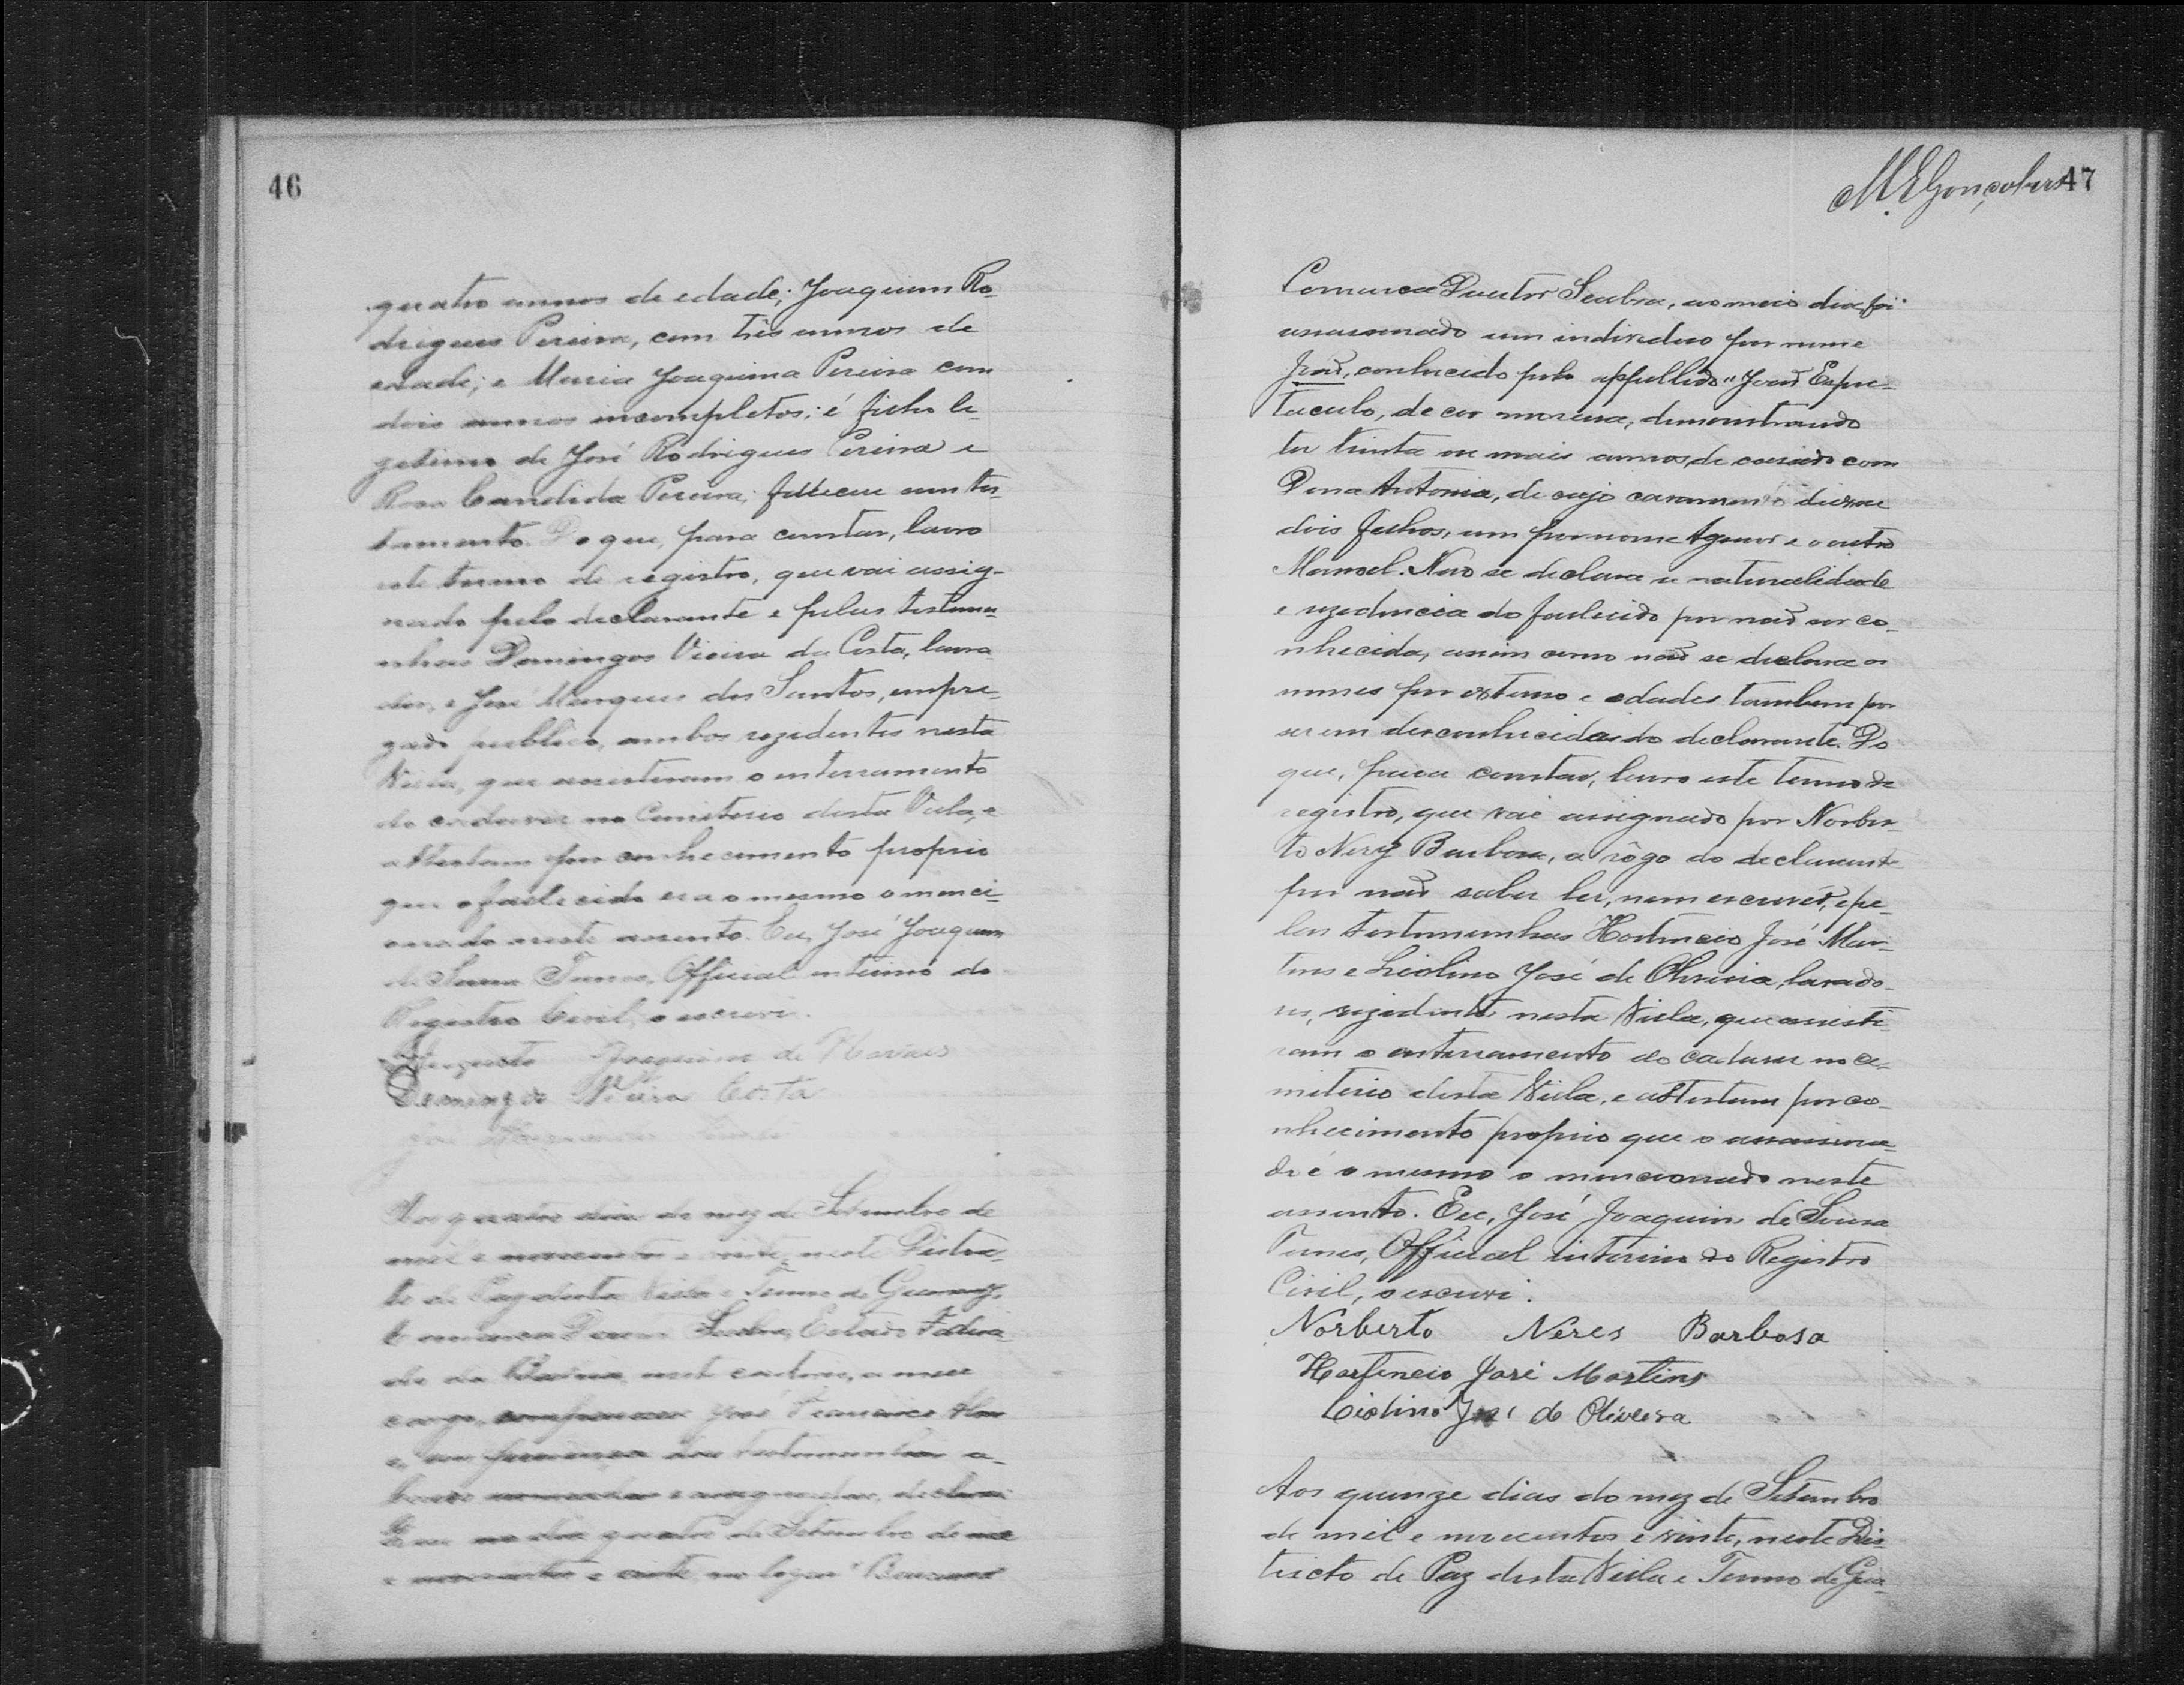 46
quatro annos de edade; Joaquim Ro-
drigues Pereira, com três annos de
edade; e Maria Joaquina Pereira com
dois annos incompletos; é filho le-
getimo de José Rodrigues Pereira e
Rosa Candida Pereira; falleceu sem tes-
tamento. Do que, para constar, lavro
este termo de registro, que vai assig-
nado pelo declarante e pelas testemu-
nhas Domingos Vieira da Costa, lavra-
dor, e José Marques dos Santos, empre-
gado publico, ambos rezidentes nesta
Villa, que assistiram o enterramento
do cadaver no Cemiterio desta Villa, e
attestam por conhecimento proprio
que o fallecido era o mesmo o menci-
onado neste assento. Eu, José Joaquim
de Sousa Tunes, Official interino do
Registro Civil, o escrevi.
Augusto Joaquim de Novaes
Domingos Vieira Costa
José
Aos quatro dias do mez de Setembro de
mil e novecentos e vinte, neste Distric-
to de Paz desta Villa e Termo de
Comarca Doutor Seabra, Estado Federa-
do da Bahia, neste cartorio, a meu
cargo, compareceu José
e, em presença das testemunhas a-
baixo nomeadas e assignadas, declarou
Que no dia quatro de Setembro de mil
e novecentos e vinte no logar
M. E Gonçalves 47
Comarca Doutor Seabra, ao meio dia, foi
assassinado um individuo por nome
João, conhecido pelo appellido "João Espec-
taculo, de cor morena, demonstrando
ter trinta ou mais annos de casado com
Dona Antonia, de cujo casamento deixou
dois filhos, um por nome Agenor e o outro
Manoel. Não se declara a naturalidade
e rezidencia do fallecido por não ser co-
nhecida, assim como não se declara os
nomes por extenso e edades tambem por
serem desconhecidas do declarante. Do
que, para constar, lavro este termo de
registro, que vai assignado por Norber-
to Nery Barbosa, a rôgo do declarante
por não saber ler, nem escrever, e pe-
las testemunhas Hortencio José Mar-
tins e Liolino José de Oliveira, lavrado-
res, rezidentes nesta Villa, que assisti-
ram o enterramento do cadaver no ce-
miterio desta Villa, e attestam por co-
nhecimento proprio que o assassina-
do é o mesmo o mencionado neste
assento. Eu, José Joaquim de Sousa
Tunes, Official interino do Registro
Civil, o escrevi.
Norberto Neres Barbosa
Hortencio José Martins
Liolino José de Oliveira
Aos quinze dias do mez de Setembro
de mil e novecentos e vinte, neste Dis-
tricto de Paz desta Villa e Termo de Gua-